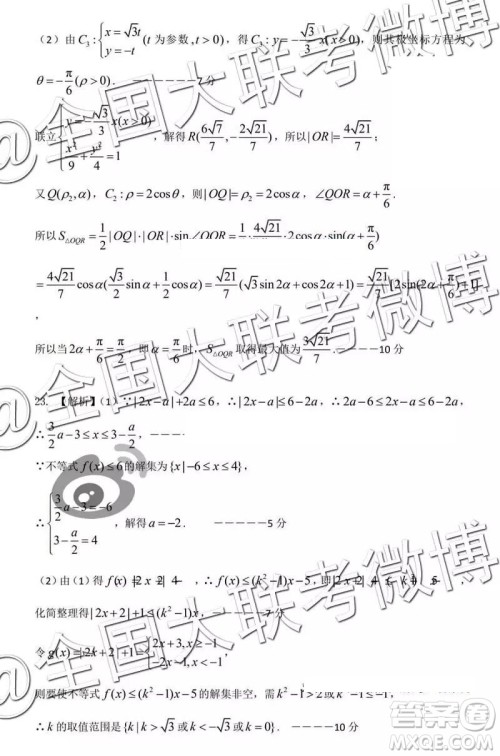 (2) 由 C₃: { x=√3t, y=−t (t 为参数, t>0), 得 C₃: y=−(√3/3)x(x>0), 则其极坐标方程为
θ=−π/6(ρ>0). −−−−−7分
联立 { y=−(√3/3)x(x>0), x²/9+y²/4=1, 解得 R(6√7/7,−2√21/7), 所以|OR|=4√21/7;
又 Q(ρ₂,α), C₂:ρ=2cosθ, 则|OQ|=2cosα, ∠QOR=α+π/6.
所以 S△OQR=1/2|OQ|·|OR|·sin∠QOR=1/2·4√21/7·2cosα·sin(α+π/6)
=4√21/7 cosα(√3/2 sinα+1/2 cosα)=√21/7(√3sin2α+cos2α+1)=√21/7[2sin(2α+π/6)+1]
,
所以当 2α+π/6=π/2, 即 α=π/6 时, S△OQR 取得最大值为 3√21/7. −−−−−10分
23. 【解析】(1)∵|2x−a|+2a≤6, ∴|2x−a|≤6−2a, ∴2a−6≤2x−a≤6−2a,
∴3/2a−3≤x≤3−a/2, −−−−
∵不等式 f(x)≤6 的解集为{x|−6≤x≤4},
∴ { 3/2a−3=−6, 3−a/2=4, 解得 a=−2. −−−−−5分
(2) 由(1)得 f(x)=|2x+2|−4, ∴f(x)≤(k²−1)x−5, 即
化简整理得|2x+2|+1≤(k²−1)x, −−−−−7分
令 g(x)=|2x+2|+1={ 2x+3,x≥−1, −2x−1,x<−1,
则要使不等式 f(x)≤(k²−1)x−5 的解集非空, 需 k²−1>2 或 k²−1≤−2,
∴k 的取值范围是{k|k>√3 或 k<−√3 或 k=0}. −−−−10分
@全国大联考微博
@全国大联考微博
@全国大联考微博